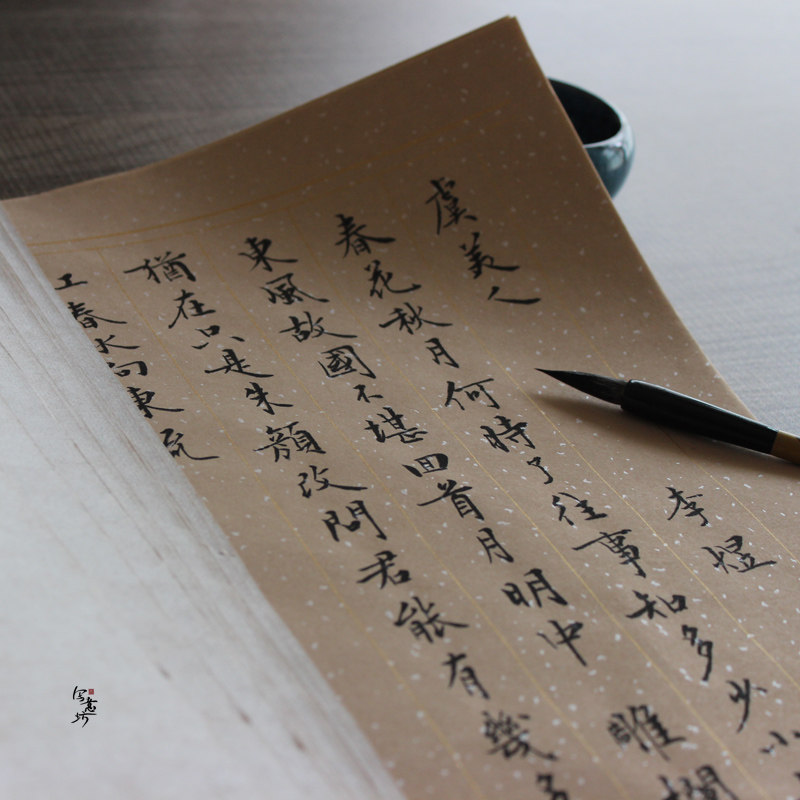 虞美人 李煜
春花秋月何時了往事知多少小
東風故國不堪回首月明中 雕欄
猶在只是朱顏改問君能有幾多
春水向東流
写意坊